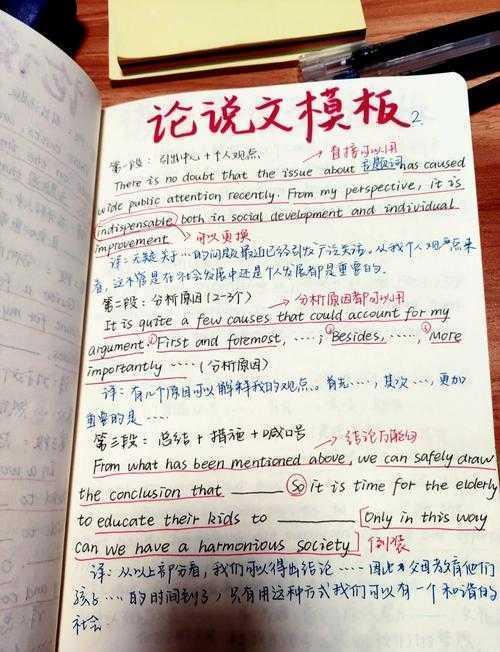 论说文模板 2
第一段：引出中心+个人观点 → 直接可以用
There is no doubt that the issue about 主题词 has caused
wide public attention recently. From my perspective, it is
indispensable both in social development and individual
improvement → 可以更换
译：无疑关于…的问题最近已经引发广泛关注。从我个人观点来
看，这不管是在社会发展中还是个人发展都是重要的。
第二段：分析原因（2-3个） → 分析原因都可以用
It is quite a few causes that could account for my
argument. ① First and foremost, ……; ② Besides, ……, ③ More
importantly ……（分析原因）
译：有几个原因可以解释我的观点。首先…，其次…，更加
重要的是……
第三段：总结+措施+喊口号 → 结论万能句
From what has been mentioned above, we can safely draw
the conclusion that ______ So it is time for the elderly
to educate their kids to ________ [Only in this way
can we have a harmonious society] 倒装
译：从以上部分看，我们可以得出结论……因此父母教育他们
孩子…的时间到了，只有用这种方式我们可以有一个和谐的
社会